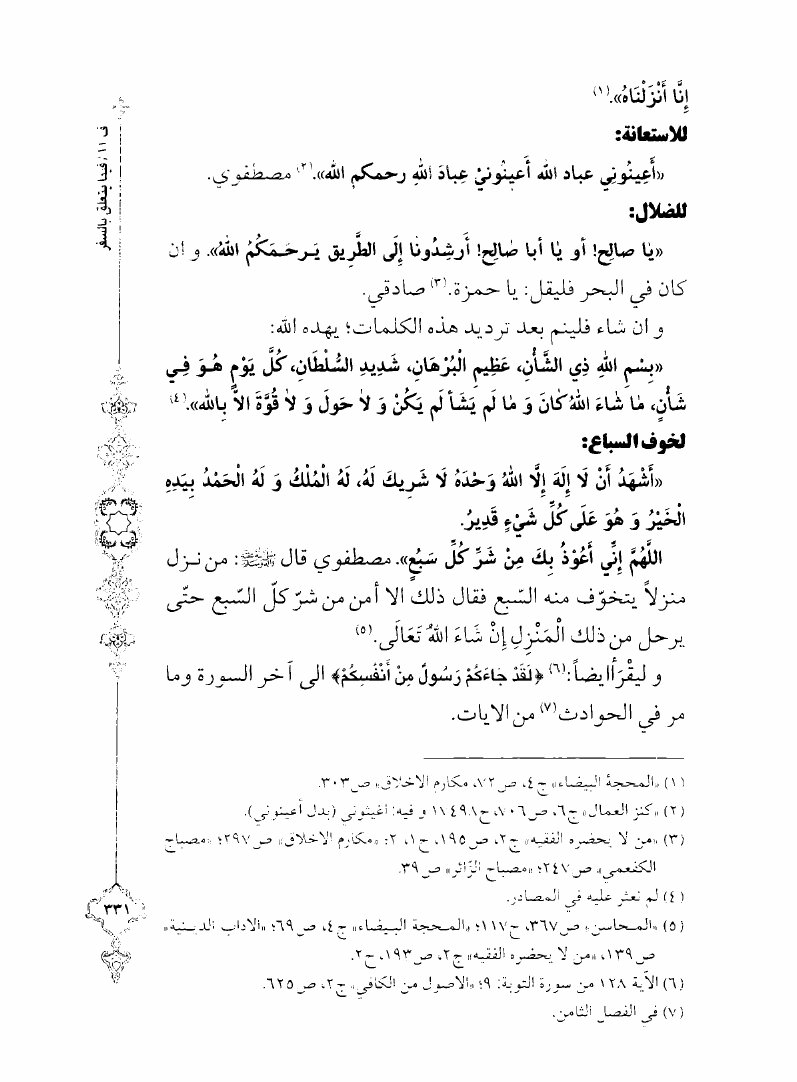 إِنَّا أَنْزَلْنَاهُ».(١)
للاستعانة:
«أَعِينُونِي عباد الله أعينُونيْ عِبادَ اللهِ رحمكم الله».(٢) مصطفوي.
للضلال:
«يٰا صالِح! أو يٰا أبا صٰالِح! أَرشِدُونٰا إلَى الطَّرِيق يَـرحَـمَكُمُ اللهُ». و ان
كان في البحر فليقل: يا حمزة.(٣) صادقي.
و ان شاء فلينم بعد ترديد هذه الكلمات؛ يهده الله:
«بِسْمِ اللهِ ذِي الشَّأْنِ، عَظِيمِ الْبُرْهَانِ، شَدِيدِ السُّلْطَانِ، كُلَّ يَوْمٍ هُـوَ فِـي
شَأْنٍ، مٰا شٰاءَ اللهُ كٰانَ وَ مٰا لَم يَشَأ لَم يَكُنْ وَ لاٰ حَولَ وَ لاٰ قُوَّةَ الاّٰ بِالله».(٤)
لخوف السباع:
«أَشْهَدُ أَنْ لَا إِلَهَ إِلَّا اللهُ وَحْدَهُ لَا شَرِيكَ لَهُ، لَهُ الْمُلْكُ وَ لَهُ الْحَمْدُ بِيَدِهِ
الْخَيْرُ وَ هُوَ عَلَى كُلِّ شَيْءٍ قَدِيرٌ.
اللَّهُمَّ إِنِّي أَعُوْذُ بِكَ مِنْ شَرِّ كُلِّ سَبُعٍ». مصطفوي قال ﷺ: من نـزل
منزلاً يتخوّف منه السّبع فقال ذلك الا أمن من شرّ كلّ السّبع حتّى
يرحل من ذلك الْمَنْزِلِ إِنْ شَاءَ اللهُ تَعَالَى.(٥)
و ليقْرَأ ايضاً:(٦) ﴿لَقَدْ جَاءَكُمْ رَسُولٌ مِنْ أَنْفُسِكُمْ﴾ الى آخر السورة وما
مر في الحوادث(٧) من الايات.
(١) «المحجة البيضاء» ج٤، ص٧٢، مكارم الاخلاق» ص٣٠٣.
(٢) «كنز العمال» ج٦، ص٧٠٦، ح١٤٩٨ا و فيه: اغيثوني (بدل أعينوني).
(٣) «من لا يحضره الفقيه» ج٢، ص١٩٥، ح١، ٢: «مكارم الاخلاق» ص٢٩٧؛ «مصباح
الكفعمي» ص٢٤٧؛ «مصباح الزّائر» ص٣٩.
(٤) لم نعثر عليه في المصادر.
(٥) «المحاسن» ص٣٦٧، ح١١٧؛ «المحجة البيضاء» ج٤، ص٦٩؛ «الاداب الدينية»
ص١٣٩، «من لا يحضره الفقيه» ج٢، ص١٩٣، ح٢.
(٦) الآية ١٢٨ من سورة التوبة: ٩؛ «الاصول من الكافي» ج٢، ص٦٢٥.
(٧) في الفصل الثامن.
ف ١١ / فيما يتعلق بالسفر
٣٣١